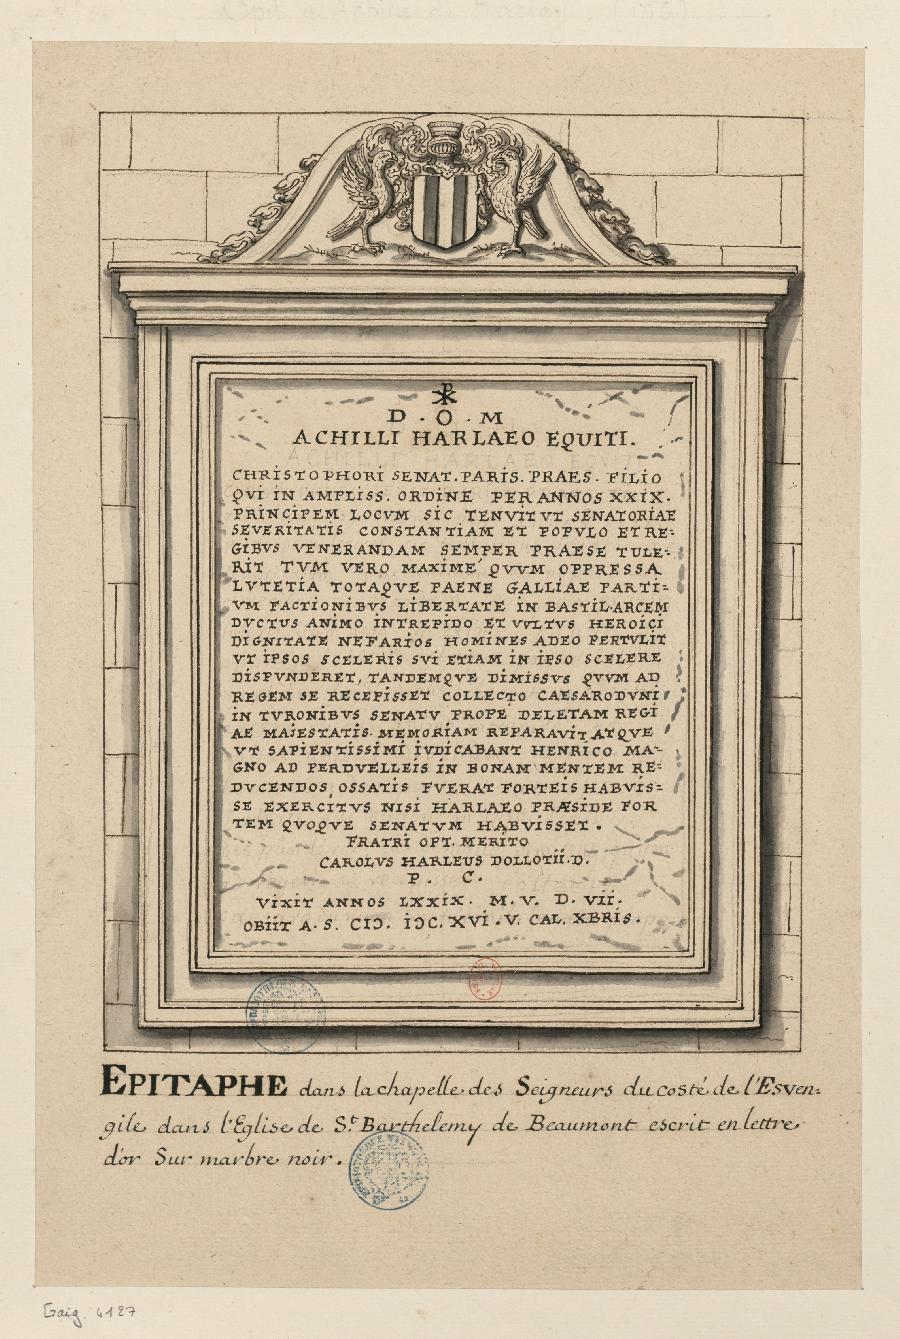 ☧
D . O . M
ACHILLI HARLAEO EQUITI.
CHRISTOPHORI SENAT. PARIS. PRAES. FILIO
QVI IN AMPLISS. ORDINE PER ANNOS XXIX.
PRINCIPEM LOCVM SIC TENVIT VT SENATORIAE
SEVERITATIS CONSTANTIAM ET POPVLO ET RE-
GIBVS VENERANDAM SEMPER PRAESE TULE-
RIT TVM VERO MAXIME QVVM OPPRESSA
LVTETIA TOTAQVE PAENE GALLIAE PARTI-
VM FACTIONIBVS LIBERTATE IN BASTIL·ARCEM
DVCTUS ANIMO INTREPIDO ET VVLTVS HEROICI
DIGNITATE NEFARIOS HOMINES ADEO PERTVLIT
VT IPSOS SCELERIS SVI ETIAM IN IPSO SCELERE
DISPVNDERET, TANDEMQVE DIMISSVS QVVM AD
REGEM SE RECEPISSET COLLECTO CAESARODVNI
IN TVRONIBVS SENATV PROPE DELETAM REGI
AE MAJESTATIS MEMORIAM REPARAVIT ATQVE
VT SAPIENTISSIMI IVDICABANT HENRICO MA-
GNO AD PERDVELLEIS IN BONAM MENTEM RE-
DVCENDOS, OSSATIS FVERAT FORTEIS HABVIS-
SE EXERCITVS NISI HARLAEO PRÆSIDE FOR
TEM QVOQVE SENATVM HABVISSET.
FRATRI OPT. MERITO
CAROLVS HARLEUS DOLLOTII.D.
P. C.
VIXIT ANNOS LXXIX. M. V. D. VII.
OBIIT A. S. CIƆ. IƆC. XVI. V. CAL. XBRIS.
EPITAPHE dans la chapelle des Seigneurs du costé de l'Esven-
gile dans l'Eglise de St. Barthelemy de Beaumont escrit en lettre
d'or Sur marbre noir.
Gaig. 4127